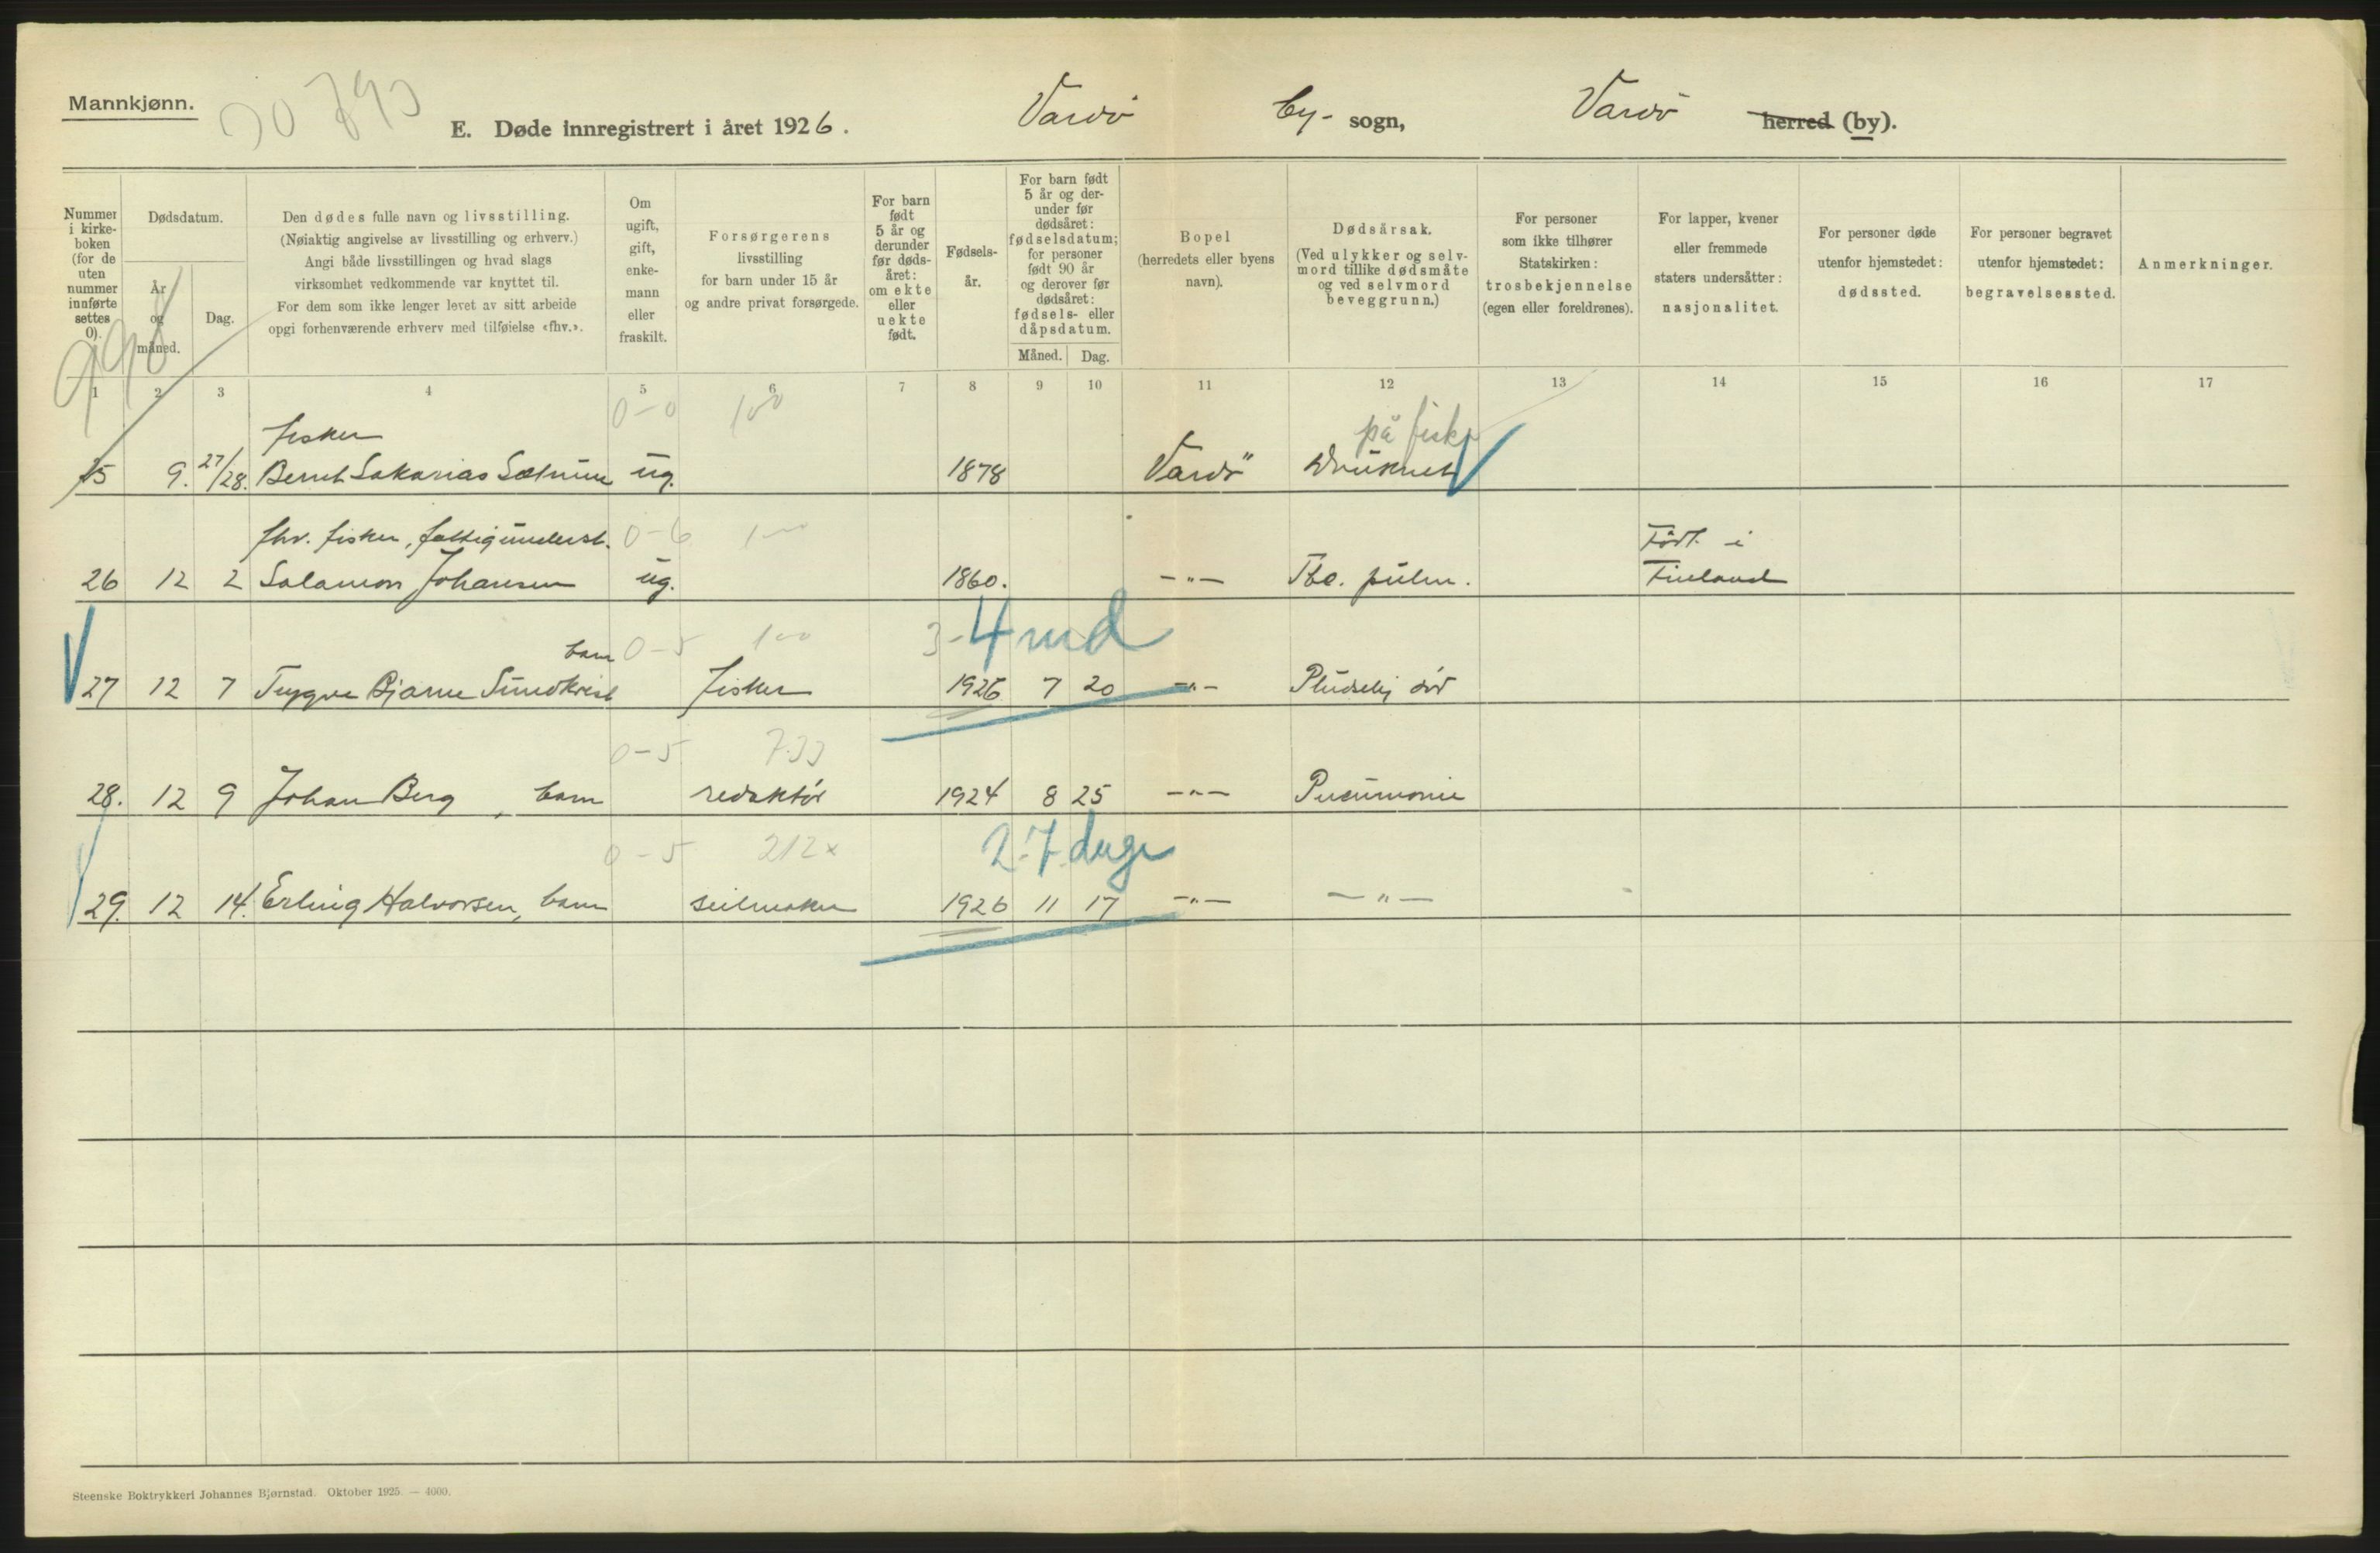 Mannkjønn.
E. Døde innregistrert i året 1926. Vardö by- sogn, Vardö herred (by).
Nummer i kirke-boken (for de uten nummer innførte settes 0).
Dødsdatum.
År og måned.
Dag.
Den dødes fulle navn og livsstilling.
(Nøiaktig angivelse av livsstilling og erhverv.)
Angi både livsstillingen og hvad slags
virksomhet vedkommende var knyttet til.
For dem som ikke lenger levet av sitt arbeide
opgi forhenværende erhverv med tilføielse «fhv.».
Om ugift, gift, enke-mann eller fraskilt.
Forsørgerens
livsstilling
for barn under 15 år
og andre privat forsørgede.
For barn født 5 år og derunder før døds-året: om ekte eller uekte født.
Fødsels-år.
For barn født 5 år og der-under før dødsåret: fødselsdatum; for personer født 90 år og derover før dødsåret: fødsels- eller dåpsdatum.
Måned. Dag.
Bopel
(herredets eller byens
navn).
Dødsårsak.
(Ved ulykker og selv-
mord tillike dødsmåte
og ved selvmord
beveggrunn.)
For personer
som ikke tilhører
Statskirken:
trosbekjennelse
(egen eller foreldrenes).
For lapper, kvener
eller fremmede
staters undersåtter:
nasjonalitet.
For personer døde
utenfor hjemstedet:
dødssted.
For personer begravet
utenfor hjemstedet:
begravelsessted.
Anmerkninger.
1 2 3 4 5 6 7 8 9 10 11 12 13 14 15 16 17
0-0 100
fisker på fiske
9. 27/28. Bernt Sakarias ug. 1878 Vardö Druknet
fhv. fisker, fattigunderst. 0-6 Född i
26 12 2 Salamon Johansen ug. 1860. -"- Tbc. pulm. Finland
barn 0-5 100 3-4 md
27 12 7 Trygve Bjarne Sundkvist fisker 1926 7 20 -"- Pludselig död
0-5
28. 12 9 Johan Berg, barn redaktör 1924 8 25 -"- Pneumonie
0-5 212x 27 dage
29. 12 14. Erling Halvorsen, barn seilmaker 1926 11 17 -"- -"-
Steenske Boktrykkeri Johannes Bjørnstad. Oktober 1925. — 4000.